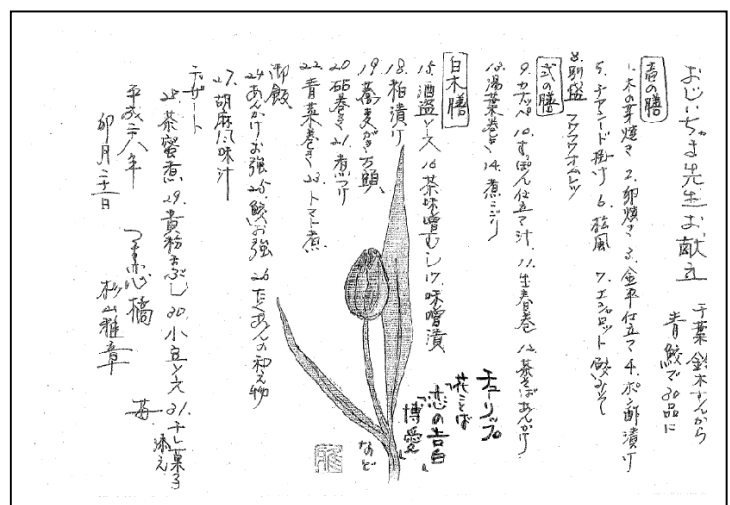 おじいちゃま先生お献立
千葉 鈴木さんから
青鮫で30品に
壱の膳
1.木の芽焼き 2.卵焼き 3.金平仕立て 4.ポン酢漬け
5.チアシード掛け 6.松風 7.エシャロット
8.フワフワオムレツ
弐の膳
9.カナッペ 10.すっぽん仕立て汁 11.生春巻 12.茶そばあんかけ
13.湯葉巻き 14.煮こごり
白木膳
15.酒盗と 16.茶味噌むし 17.味噌漬
18.粕漬け
19.蕎麦がき万頭
20.砧巻き 21.煮つけ
22.青菜巻き 23.トマト煮
御飯
24.あんかけお強 25.鮫お強 26.たくあんの和え物
27.胡麻だし味汁
デザート
28.茶蜜煮 29.黄粉まぶし 30.小豆と 31.干し菓子
添え
平成二八年
卯月二十一日
杉山雅章
チューリップ
花ことば
"恋の告白"
"博愛"
など